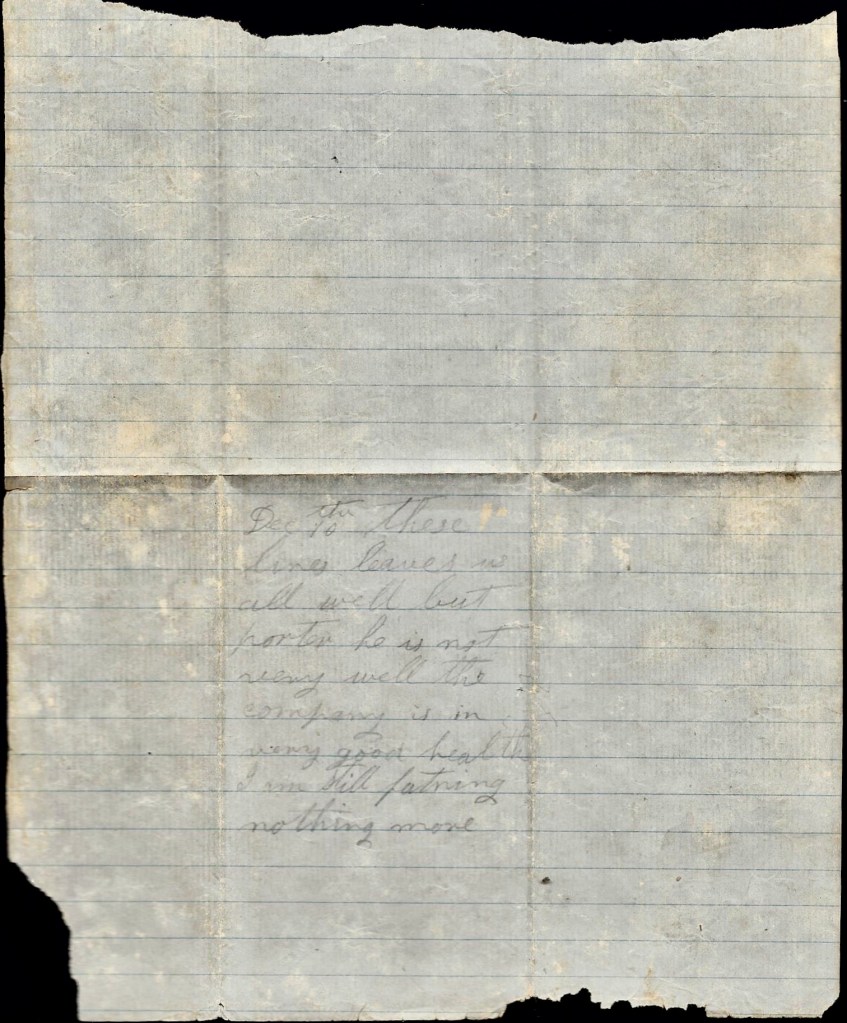 Dec 10th these
lines leaves us
all well but
porter he is not
very well the
company is in
very good health
I am still fatning
nothing more